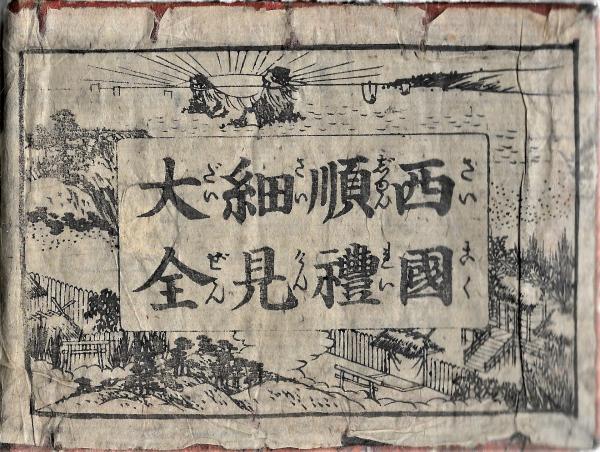 西國
さいこく
順禮
じゆんれい
細見
さいけん
大全
だいぜん